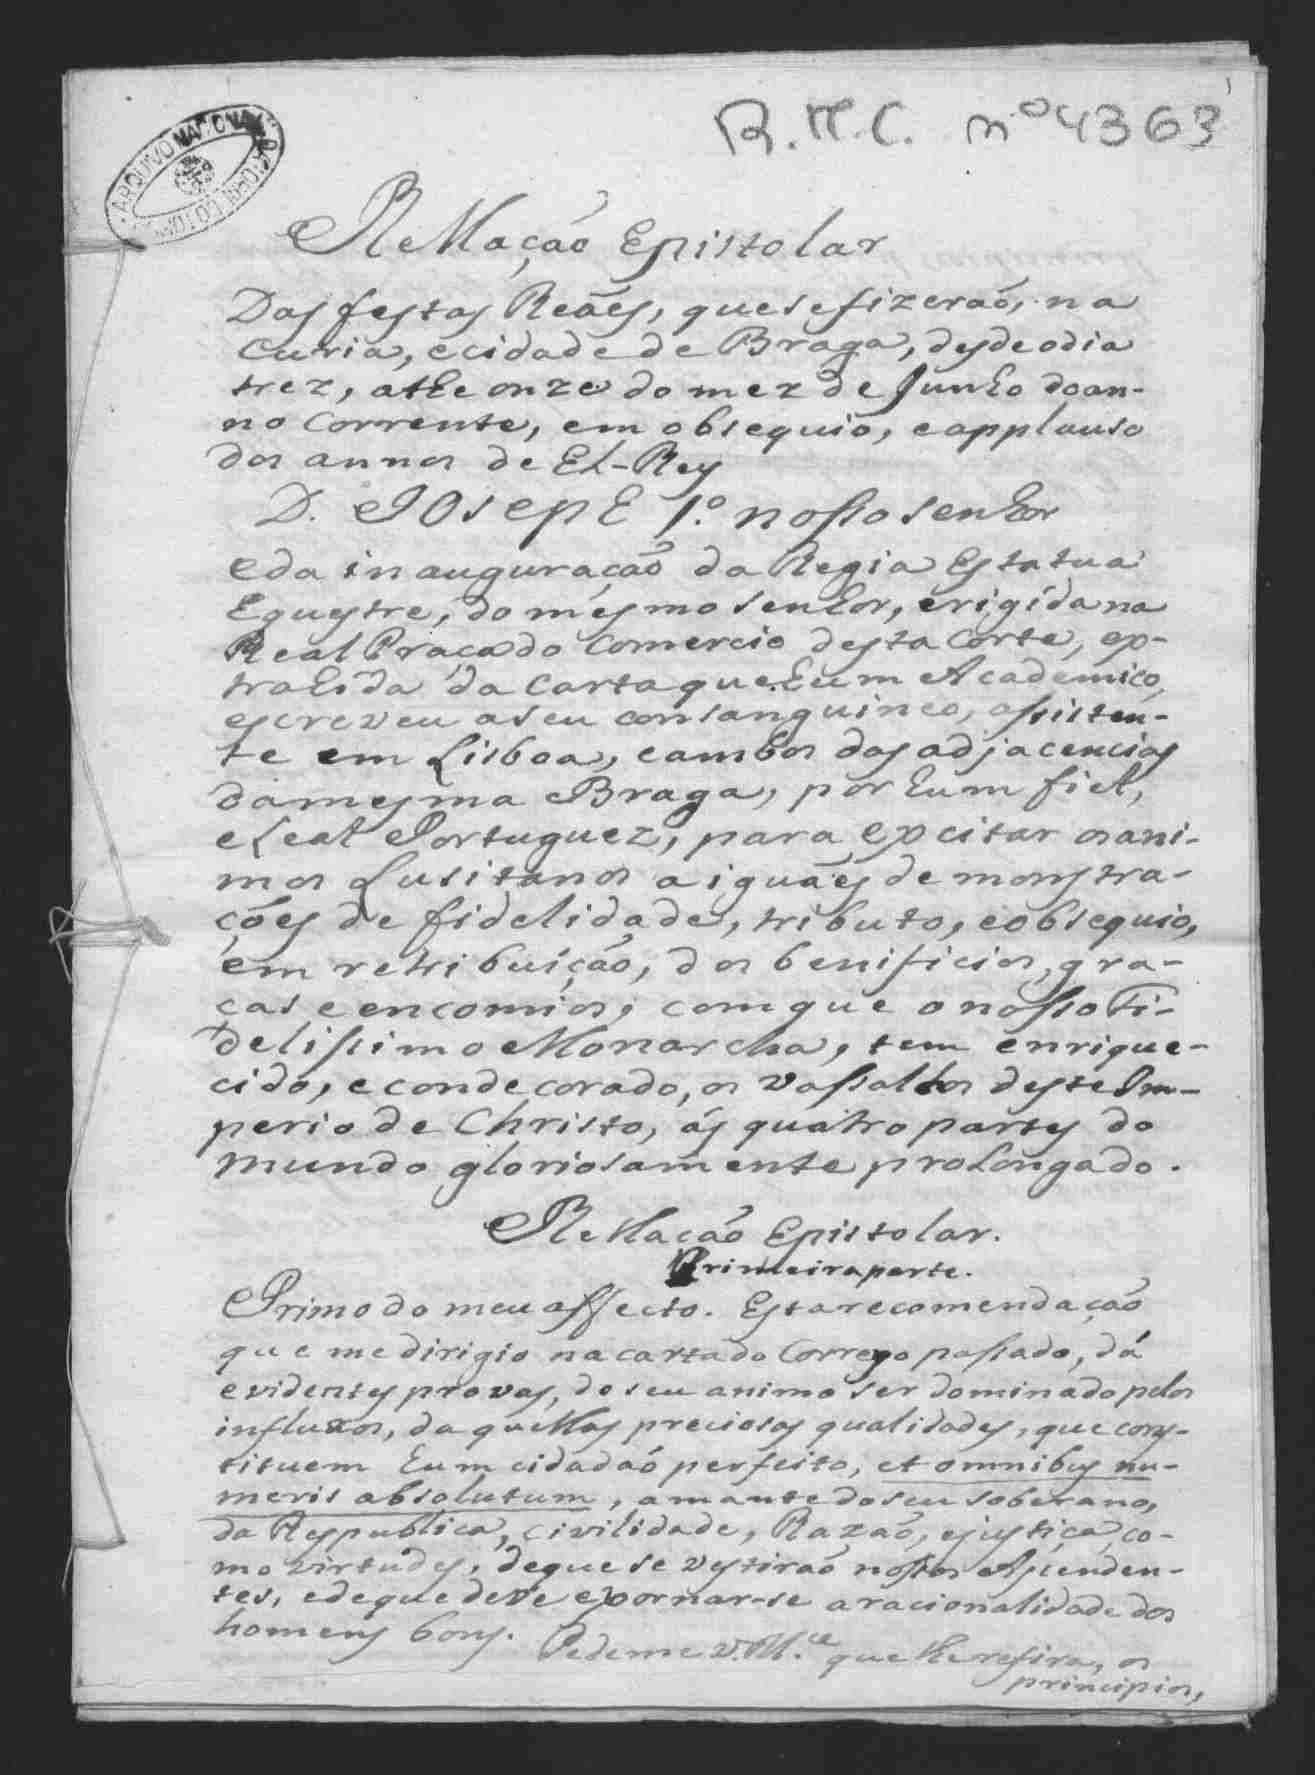 R.M.C. nº 4363
1
ARQUIVO NACIONAL DA TORRE DO TOMBO
Rellação Epistolar
Das festas Reães, que se fizeraõ, na
Curia, e cidade de Braga, desde o dia
trez, athe onze do mez de Junho do an-
no corrente, em obsequio, e applauso
dos annos de El-Rey
D. Joseph 1.º nosso senhor
e da inauguração da Regia Estatua
Equestre, do mesmo senhor, erigída na
Real Praça do Comercio desta Corte, ex-
trahída da Carta que hum Academico,
escreveu a seu consanguineo, assisten-
te em Lisboa, e ambos das adjacencias
da mesma Braga, por hum fiel,
e Leal Portuguez, para excitar os ani-
mos Lusitanos a iguães demonstra-
ções de fidelidade, tributo, e obsequio,
em retribuíção, dos benificios, gra-
ças e encomios, com que o nosso Fi-
delissimo Monarcha, tem enrique-
cido, e condecorado, os vassallos deste Im-
perio de Christo, ás quatro partes do
mundo gloriosamente prolongado.
Rellação Epistolar.
Primeira parte.
Primo do meu affecto. Esta recomendação
que me dirigio na carta do Correyo passado, dá
evidentes provas, do seu animo ser dominado pelos
influxos, daquellas preciosas qualidades, que cons-
tituem hum cidadaõ perfeito, et omnibus nu-
meris absolutum, amante do seu soberano,
da Respublica, civilidade, Razaõ, e justiça, co-
mo virtudes, de que se vestiraõ nossos Ascenden-
tes, e de que deve exornar-se a racionalidade dos
homens bons. Pedeme v. M.ce que lhe refira, os
principios,